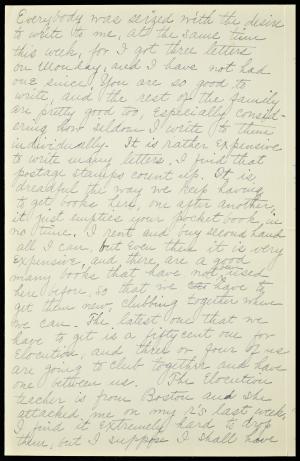 Everybody was seized with the desire
to write to me, at the same time
this week, for I got three letters
on Monday, and I have not had
one since. You are so good to
write, and the rest of the family
are pretty good too, especially consid-
ering how seldom I write to them
individually. It is rather expensive
to write many letters. I find that
postage stamps count up. It is
dreadful the way we keep having
to get books here, one after another,
it just empties your pocket book in
no time. I rent and buy second hand
all I can, but even then it is very
expensive, and there are a good
many books that have not been used
here before, so that we have to
get them new, clubbing together when
we can. The latest one that we
have to get is a fifty cent one for
Elocution, and three or four of us
are going to club together and have
one between us. The Elocution
teacher is from Boston and she
attacked me on my r's last week.
I find it extremely hard to drop
them, but I suppose I shall have